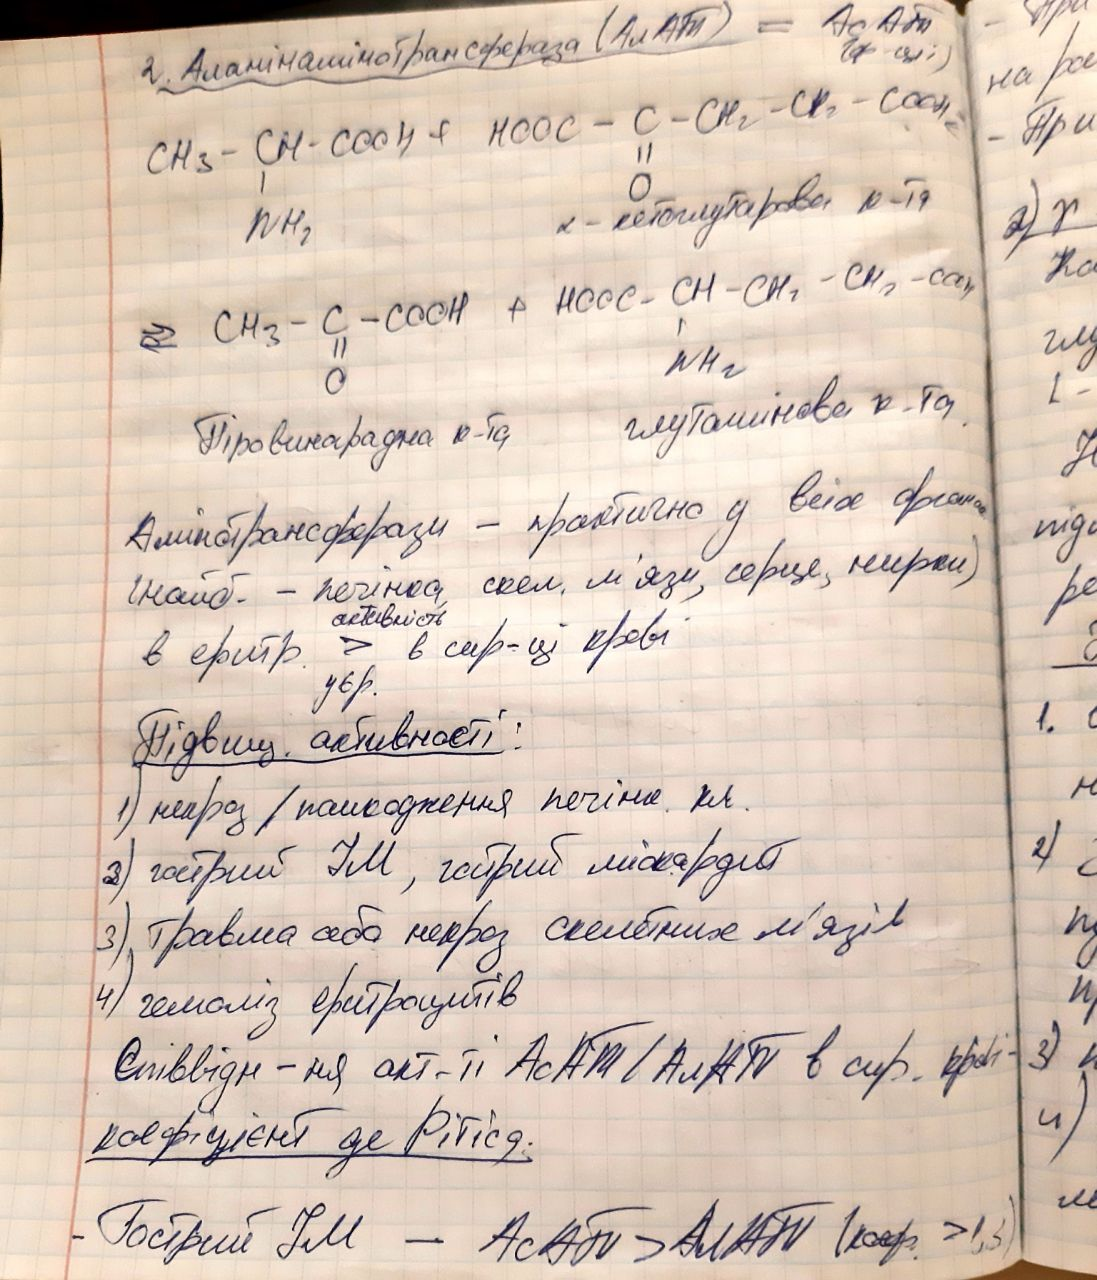 2. Аланінамінотрансфераза (АлАТ) = АсАТ
(ф-ції)
CH3 – CH – COOH + HOOC – C – CH2 – CH2 – COOH
NH2 O
α – кетоглутарова к-та
⇄ CH3 – C – COOH + HOOC – CH – CH2 – CH2 – COOH
O NH2
Піровинарадна к-та глутамінова к-та
Амінотрансферази – практично у всіх органах
(найб. – печінка, скел. м'язи, серце, нирки)
активність
в еритр. > в сир-ці крові
у 6 р.
Підвищ. активності:
1) некроз / пошкодження печінк. кл.
2) гострий ІМ, гострий міокардит
3) травма або некроз скелетних м'язів
4) гемоліз еритроцитів
Співвідн-ня акт-ті АсАТ/АлАТ в сир. крові –
коефіцієнт де Рітіса:
- Гострий ІМ – АсАТ > АлАТ (коеф. > 1,3)
- При
на
- При
2)
1.
2)
3)
4)